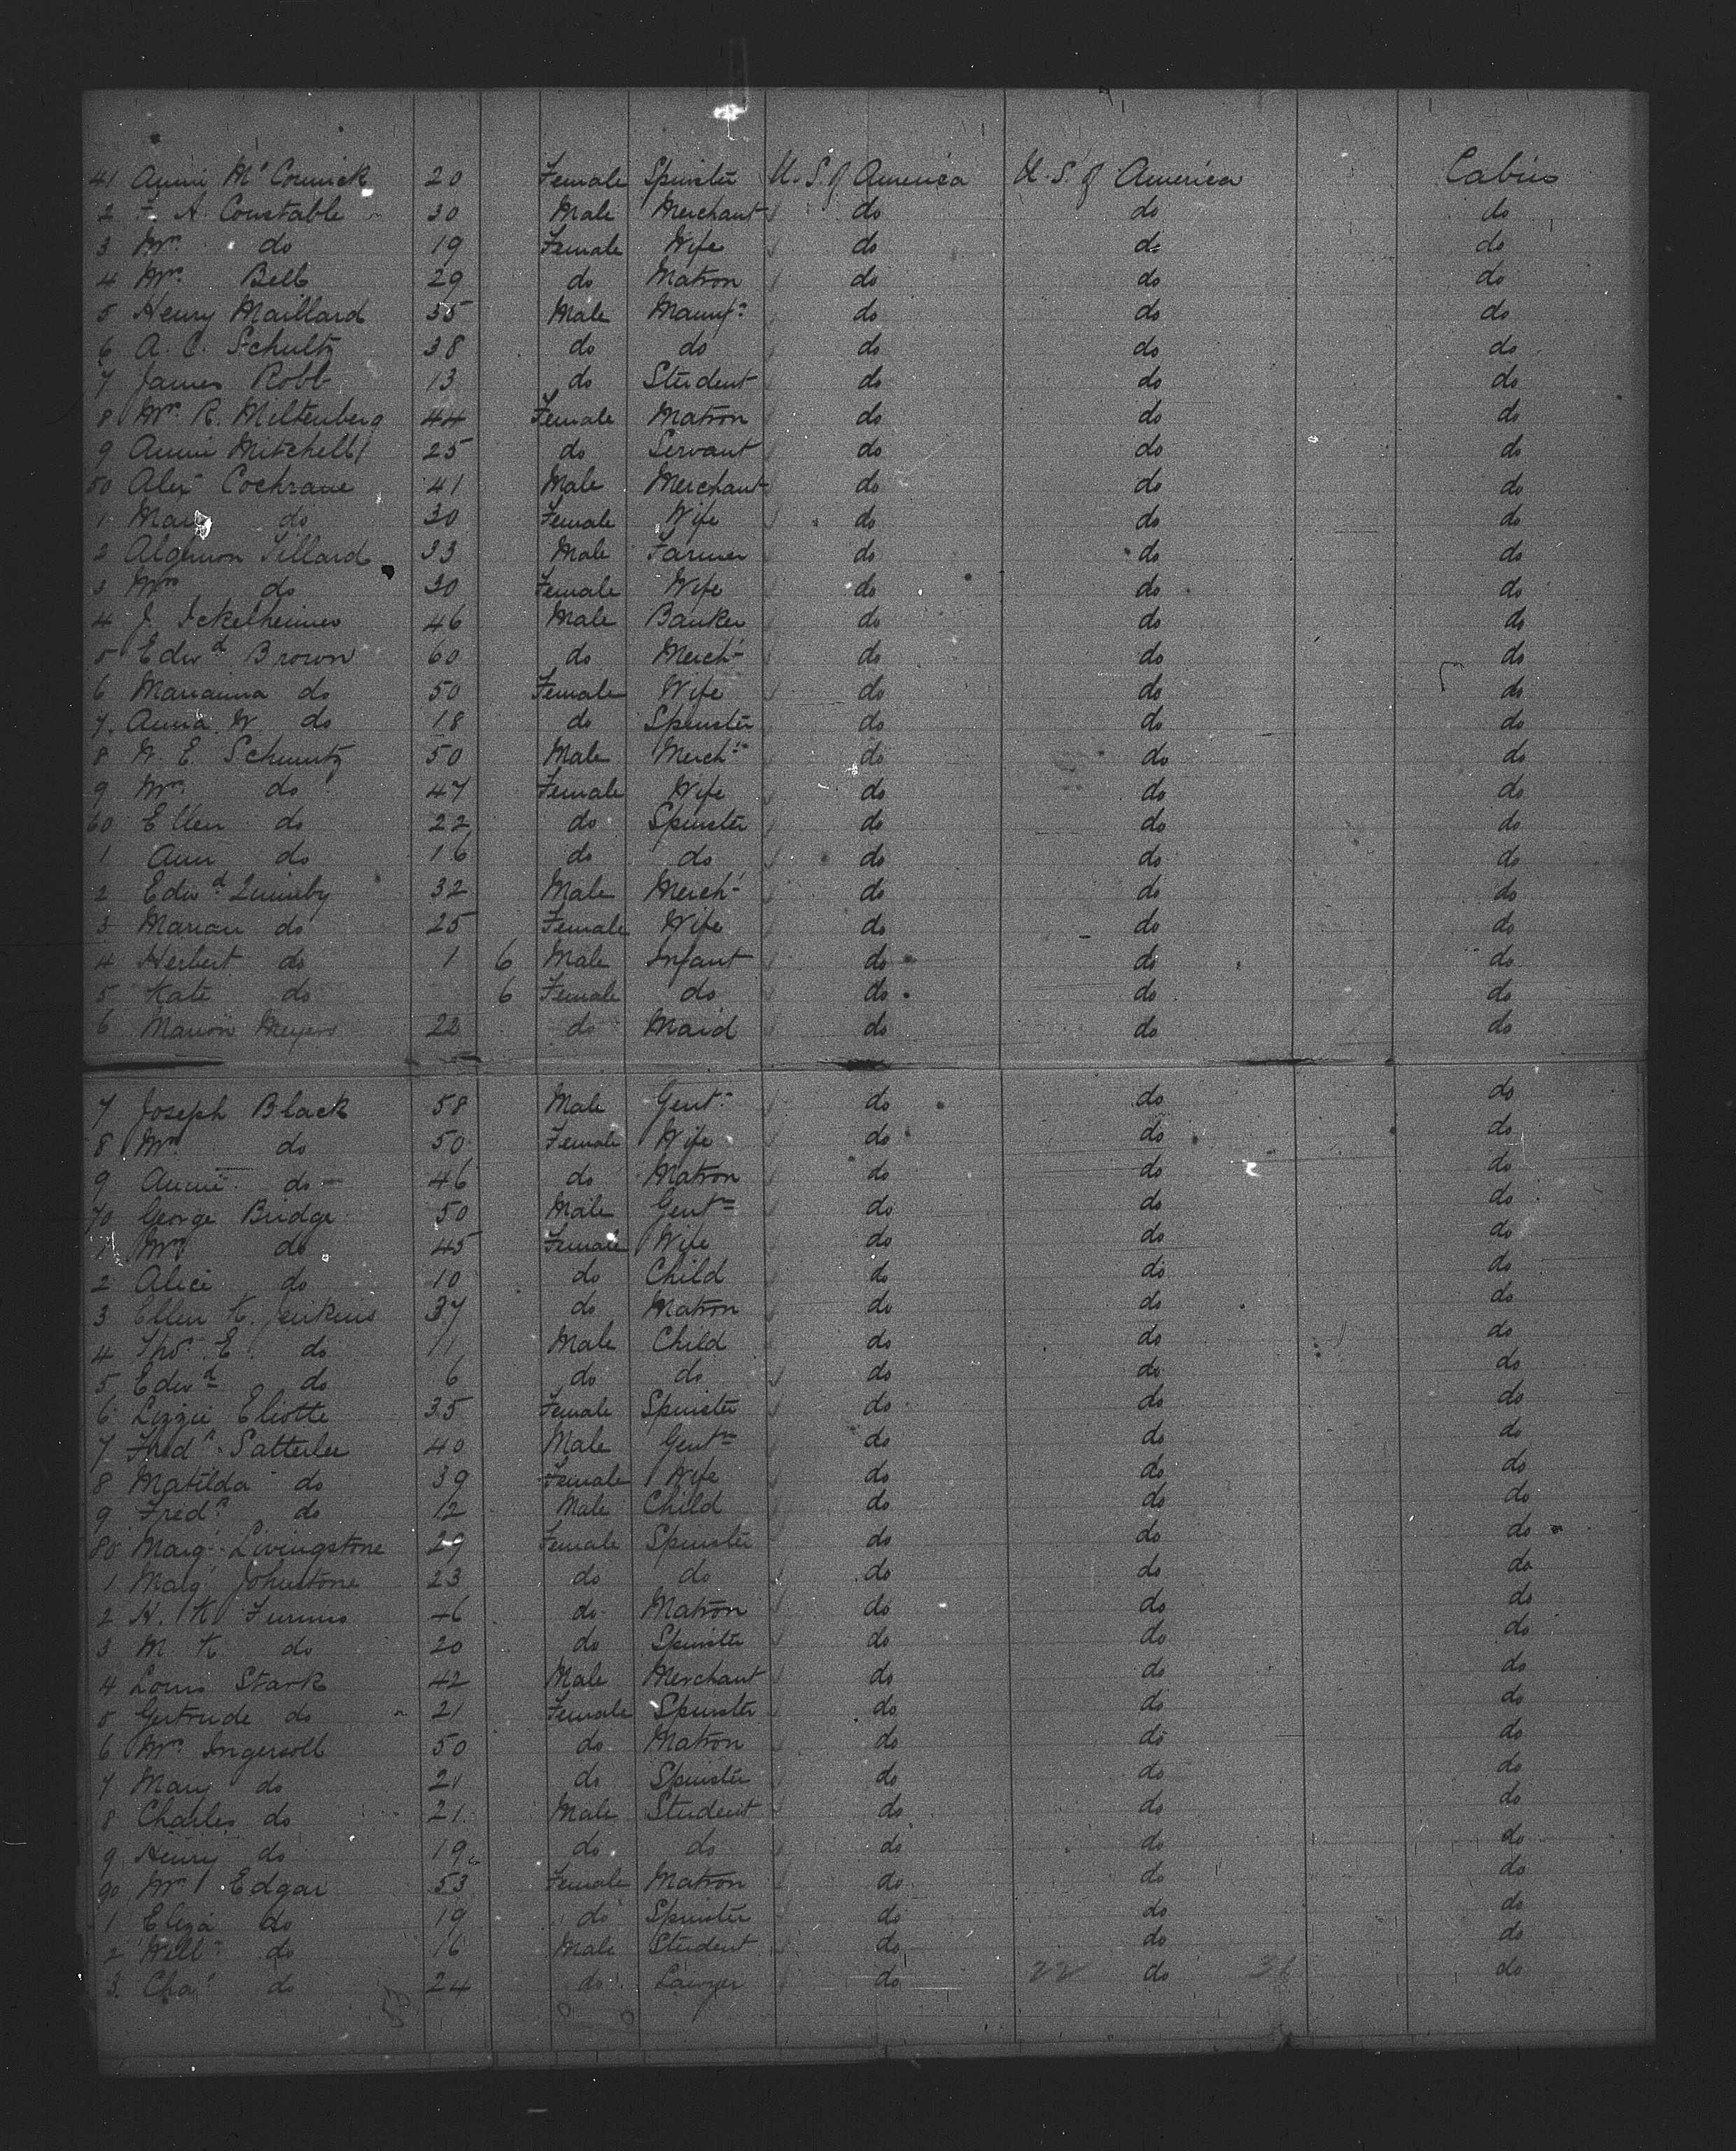 41 Annie McCormick 20 Female Spinster U. S. of America U. S. of America Cabin
2 F. A. Constable 30 Male Merchant do do do
3 Mrs do 19 Female Wife do do do
4 Mrs Bell 29 do Matron do do do
5 Henry Maillard 35 Male Manufr do do do
6 A. C. Schultz 38 do do do do do
7 James Robb 13 do Student do do do
8 Mrs R. Miltenberg 44 Female Matron do do do
9 Annie Mitchell 25 do Servant do do do
50 Alex Cochrane 41 Male Merchant do do do
1 Mary do 30 Female Wife do do do
2 Algernon Tillard 33 Male Farmer do do do
3 Mrs do 30 Female Wife do do do
4 J. Ickelheimer 46 Male Banker do do do
5 Edwd Brown 60 do Mercht do do do
6 Marianna do 50 Female Wife do do do
7. Anna W do 18 do Spinster do do do
8 W. E. Schmitz 50 Male Mercht do do do
9 Mrs do 47 Female Wife do do do
60 Ellen do 22 do Spinster do do do
1 Ann do 16 do do do do do
2 Edwd Quimby 32 Male Mercht do do do
3 Marian do 25 Female Wife do do do
4 Herbert do 1 6 Male Infant do do do
5 Kate do 6 Female do do do do
6 Marion Meyers 22 do Maid do do do
7 Joseph Black 58 Male Gentn do do do
8 Mrs do 50 Female Wife do do do
9 Annie do 46 do Matron do do do
70 George Bridge 50 Male Gentn do do do
1 Mrs do 45 Female Wife do do do
2 Alice do 10 do Child do do do
3 Ellen K. Jenkins 37 do Matron do do do
4 Thos E. do 11 Male Child do do do
5 Edwd do 6 do do do do do
6 Lizzie Eliotte 35 Female Spinster do do do
7 Fredk Satterlee 40 Male Gentn do do do
8 Matilda do 39 Female Wife do do do
9 Fredk do 12 Male Child do do do
80 Margt Livingstone 29 Female Spinster do do do
1 Margt Johnstone 23 do do do do do
2 H. K. 46 do Matron do do do
3 M. K. do 20 do Spinster do do do
4 Louis Stark 42 Male Merchant do do do
5 Gertrude do 21 Female Spinster do do do
6 Mrs Ingersoll 50 do Matron do do do
7 Mary do 21 do Spinster do do do
8 Charles do 21 Male Student do do do
9 Henry do 19 do do do do do
90 Mrs Edgar 53 Female Matron do do do
1 Eliza do 19 do Spinster do do do
2 Willm do 16 Male Student do do do
3. Chas do 24 do Lawyer do 22 do 31 do